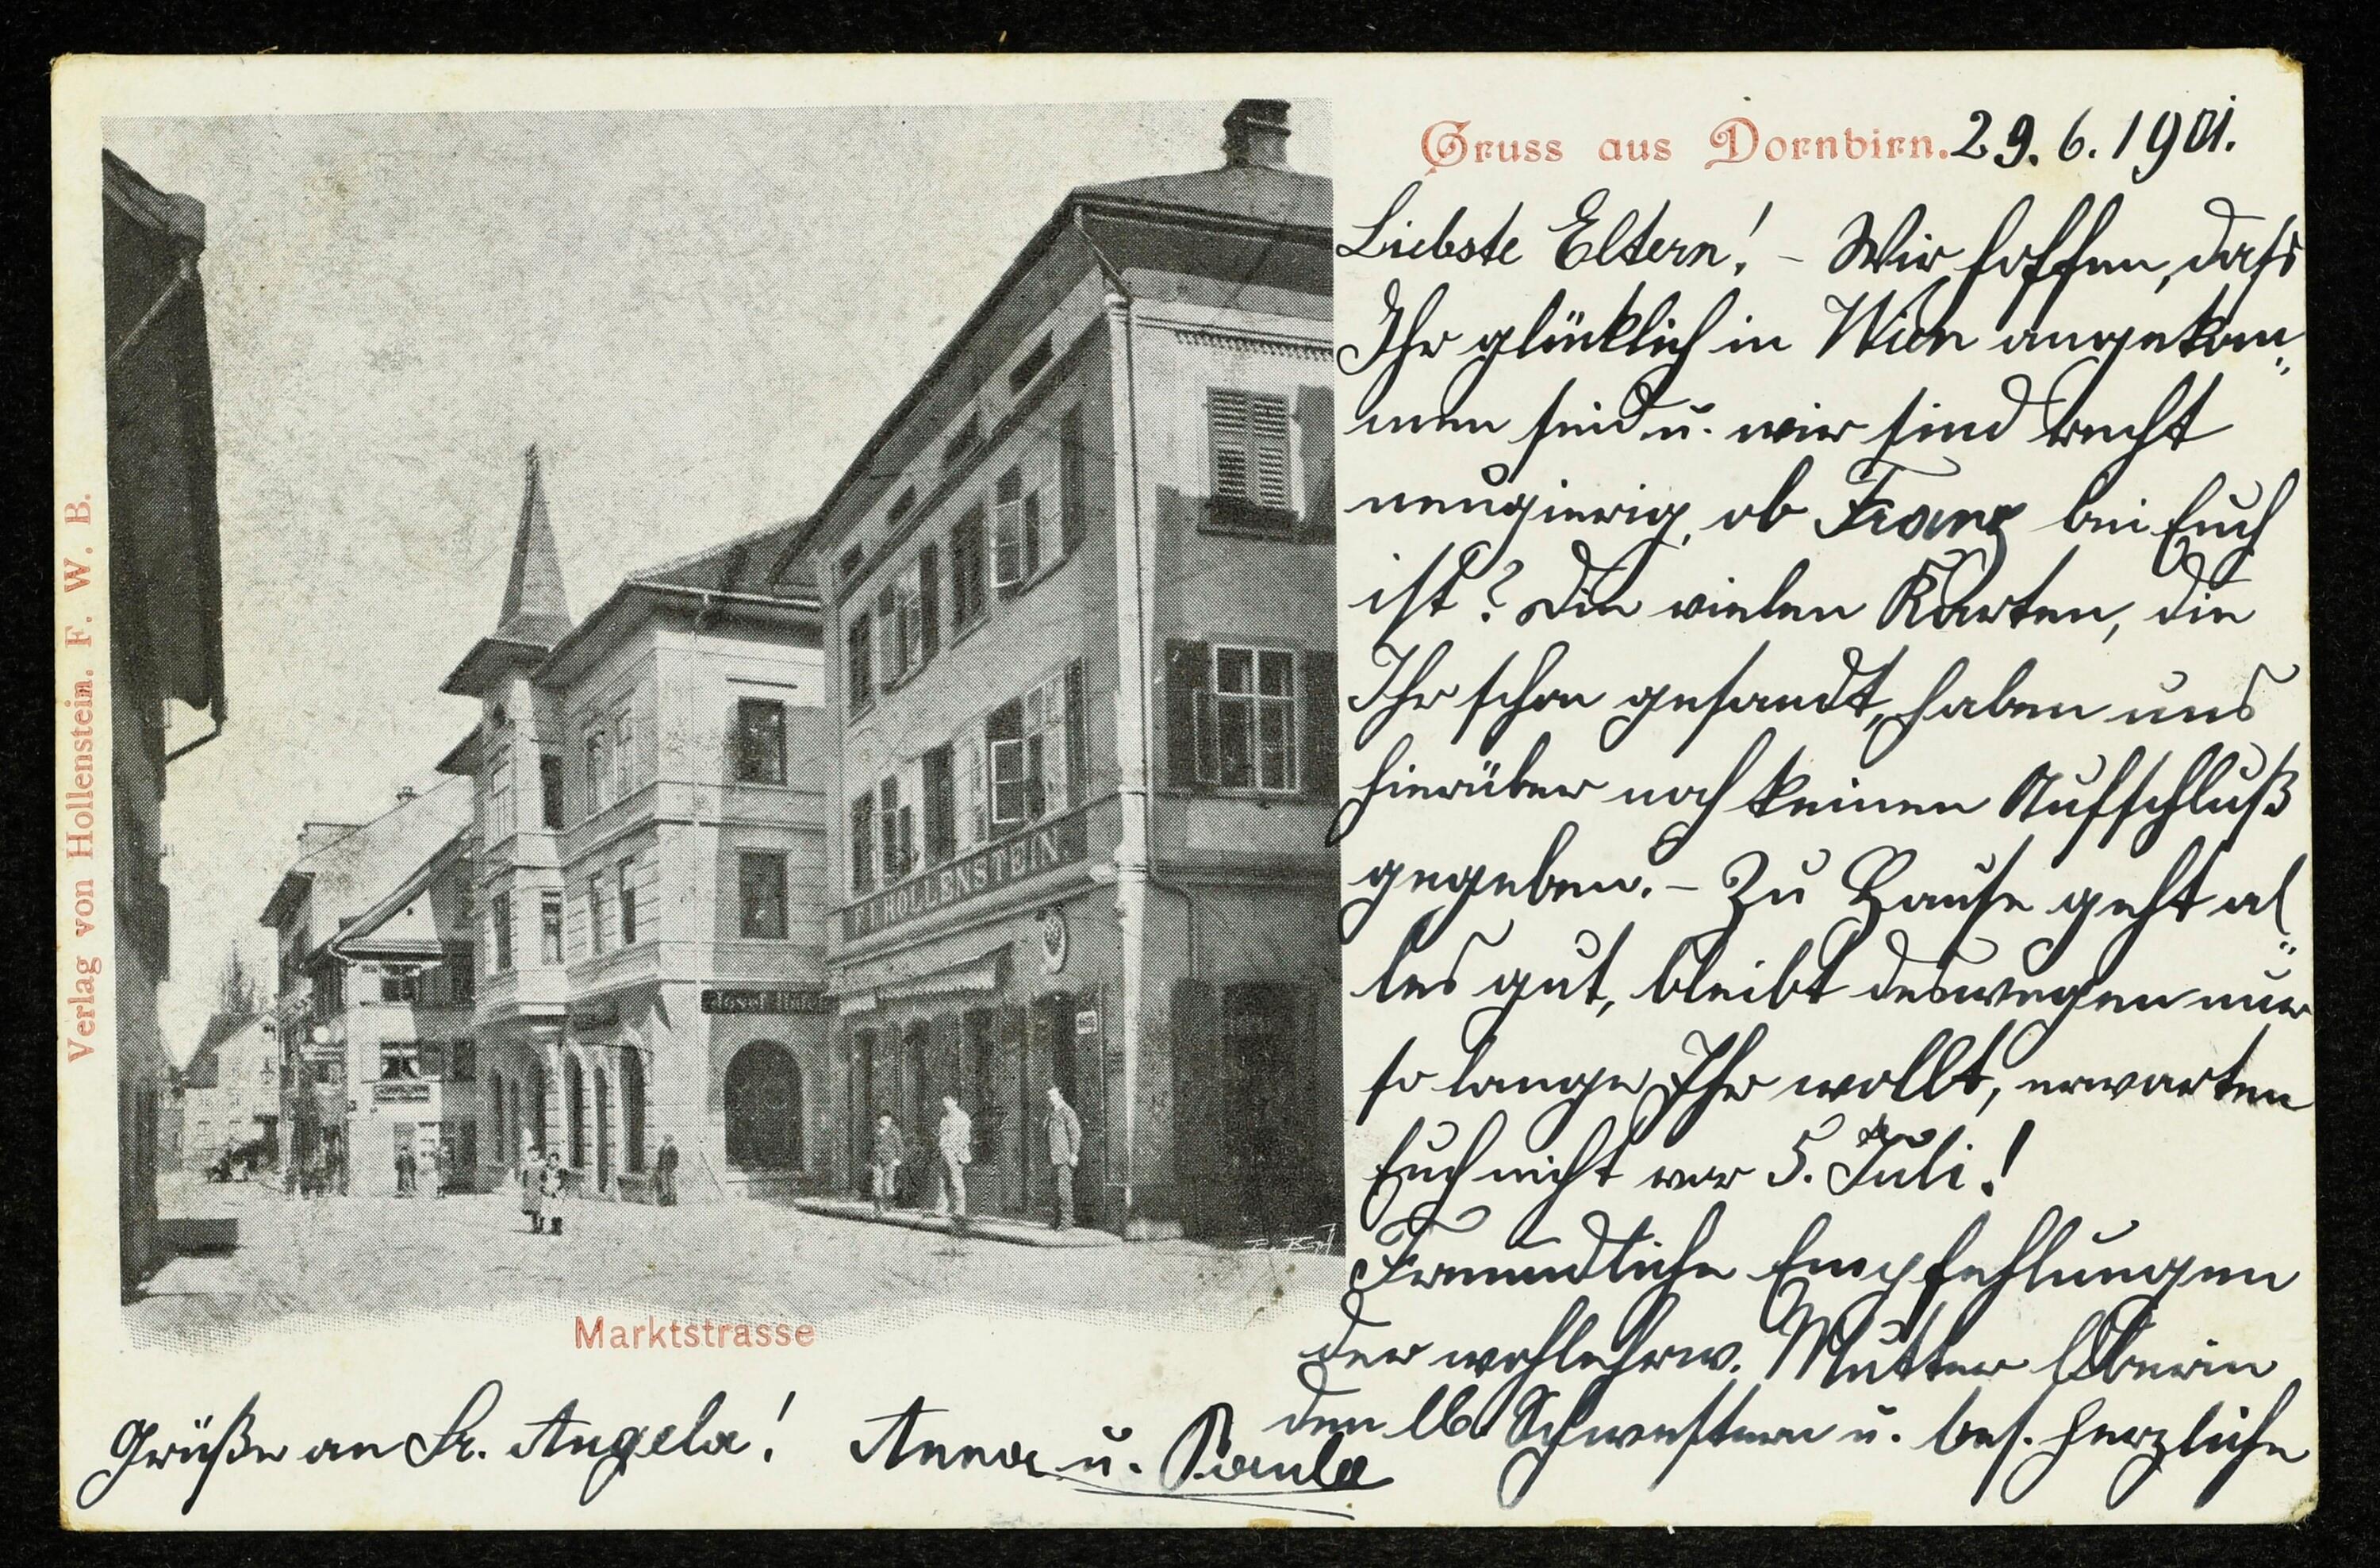 Gruss aus Dornbirn. 29.6.1901.
Liebste Eltern! – Wir hoffen, dass
Ihr glücklich in Wien angekom„
men seid u. wir sind recht
neugierig, ob Franz bei Euch
ist? Die vielen Karten, die
Ihr schon gesandt, haben uns
hierüber noch keinen Aufschluß
gegeben. – Zu Hause geht al„
les gut, bleibt deswegen nur
so lange Ihr wollt, erwarten
Euch nicht vor 5. Juli!
Freundliche Empfehlungen
der wohlehrw. Mutter Oberin
den lb. Schwestern u. bes. herzliche
Grüße an Sr. Angela! Anna u. Paula
Marktstrasse
Verlag von Hollenstein. F. W. B.
F. A. HOLLENSTEIN.
Josef